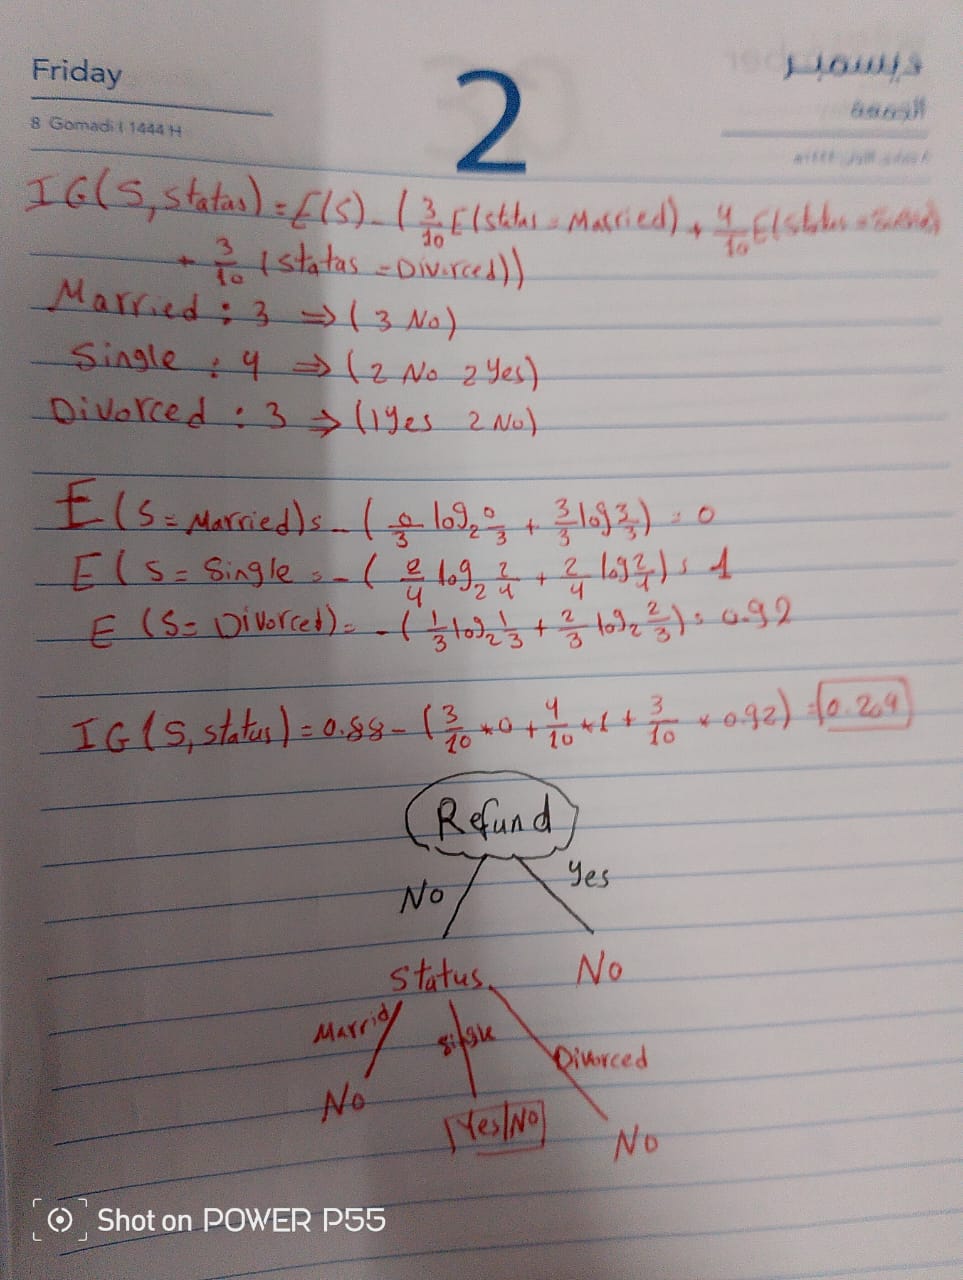 Friday
2
ديسمبر
الجمعة
8 Gomadi I 1444 H
IG(S, status) = E(S) - ( 3/10 E(status = Married) + 4/10 E(status =
+ 3/10 (status = Divorced))
Married : 3 ⇒ ( 3 No)
Single : 4 ⇒ (2 No 2 Yes)
Divorced : 3 ⇒ (1Yes 2 No)
E(S = Married) = - ( 0/3 log2 0/3 + 3/3 log 3/3 ) = 0
E(S = Single = - ( 2/4 log2 2/4 + 2/4 log 2/4 ) = 1
E (S = Divorced) = - ( 1/3 log2 1/3 + 2/3 log2 2/3 ) = 0.92
IG(S, status) = 0.88 - ( 3/10 * 0 + 4/10 * 1 + 3/10 * 0.92) = 0.204
Refund
No Yes
Status No
Married Single Divorced
No Yes/No No
Shot on POWER P55